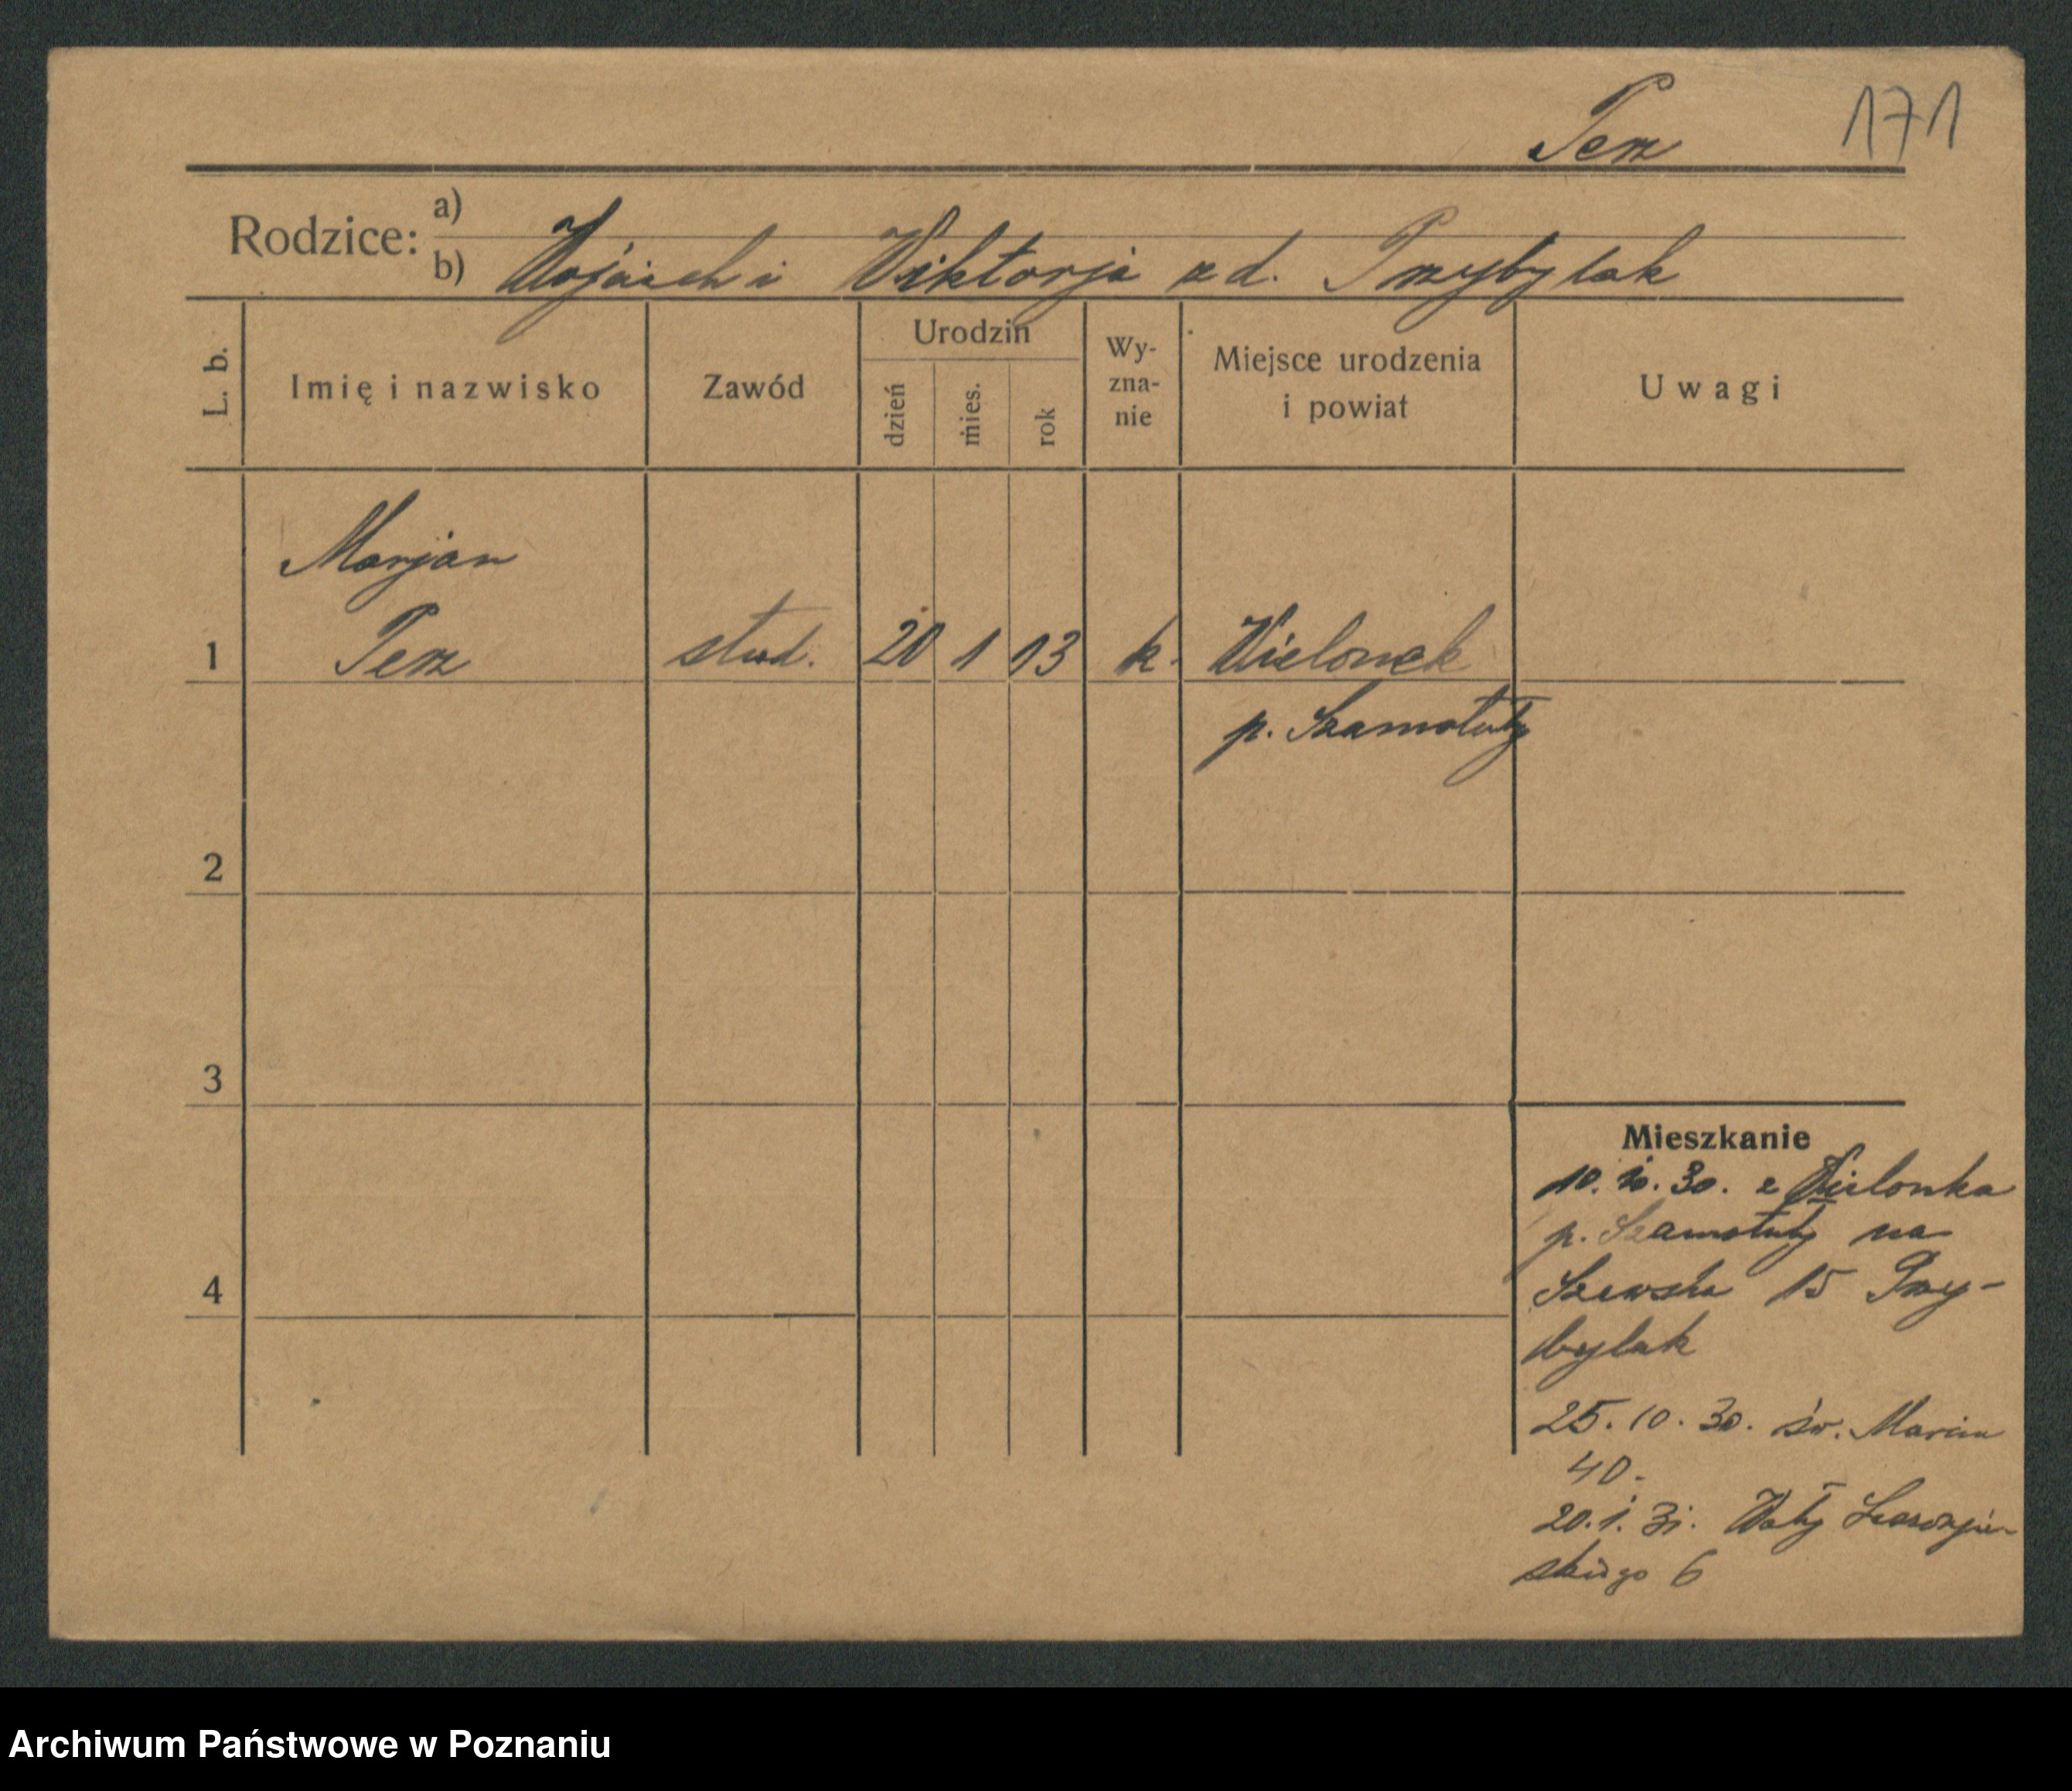 Perz 171
Rodzice: a)
b) Wojciech i Wiktorja z d. Przybylak
L. b. Imię i nazwisko Zawód Urodzin dzień mies. rok Wy-zna-nie Miejsce urodzenia i powiat Uwagi
Marjan
1 Perz stud. 20 1 13 k. Wielonek
p. Szamotuły
2
3
Mieszkanie
10. 10. 30. z Wielonka
p. Szamotuły na
4 Szewska 15 Przy-
bylak
25. 10. 30. św. Marcin
40.
20. 1. 31. Wały
skiego 6
Archiwum Państwowe w Poznaniu